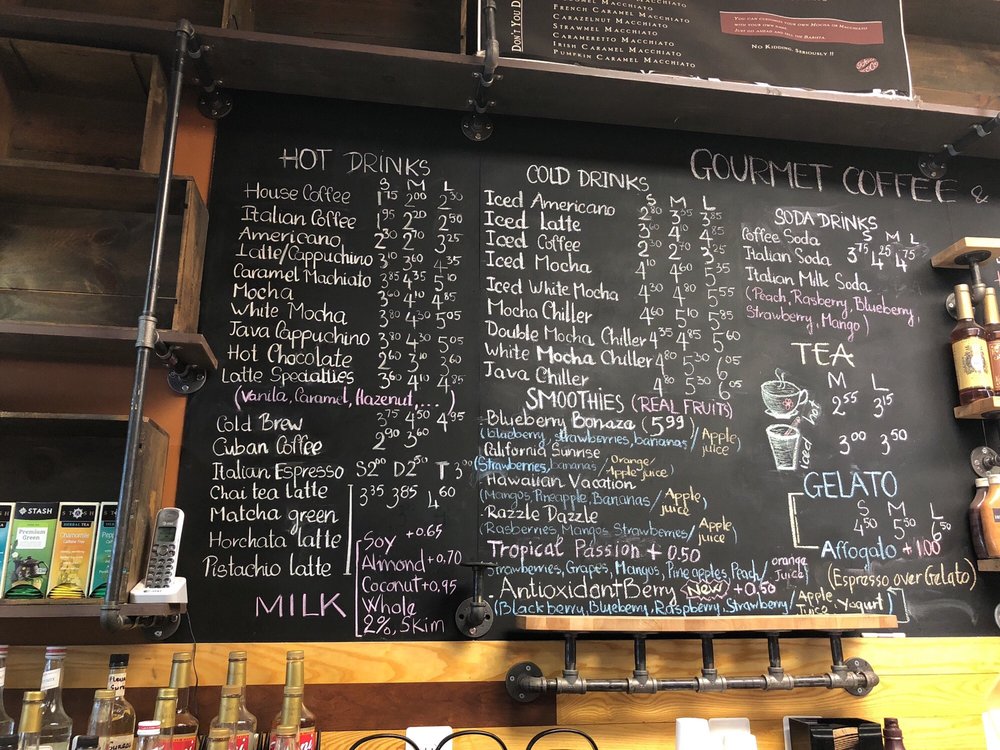 DON'T YOU D
CARAMEL MACCHIATO
FRENCH CARAMEL MACCHIATO
CARAZELNUT MACCHIATO
STRAWMEL MACCHIATO
CARAMERETTO MACCHIATO
IRISH CARAMEL MACCHIATO
PUMPKIN CARAMEL MACCHIATO
YOU CAN CUSTOMIZE YOUR OWN MOCHA OR MACCHIATO
WITH YOUR OWN NAME.
JUST GO AHEAD AND TELL THE BARISTA.
NO KIDDING, SERIOUSLY !!
GOURMET COFFEE &
HOT DRINKS
S M L
House Coffee 1.75 2.00 2.50
Italian Coffee 1.95 2.20 2.50
Americano 2.30 2.70 3.25
Latte/Cappuchino 3.10 3.60 4.35
Caramel Machiato 3.85 4.35 5.10
Mocha 3.60 4.10 4.85
White Mocha 3.80 4.30 5.05
Java Cappuchino 3.80 4.30 5.05
Hot Chocolate 2.60 3.10 3.60
Latte Specialties 3.60 4.10 4.85
(Vanila, Caramel, Hazenut,...)
Cold Brew 3.75 4.50 4.95
Cuban Coffee 2.90 3.60
Italian Espresso S2.00 D2.50 T 3.00
Chai tea latte 3.35 3.85 4.60
Matcha green
Horchata latte
Pistachio latte
MILK
Soy +0.65
Almond +0.70
Coconut +0.95
Whole
2%, Skim
COLD DRINKS
S M L
Iced Americano 2.80 3.35 3.85
Iced Latte 3.60 4.10 4.85
Iced Coffee 2.30 2.70 3.25
Iced Mocha 4.10 4.60 5.35
Iced White Mocha 4.30 4.80 5.55
Mocha Chiller 4.60 5.10 5.85
Double Mocha Chiller 4.35 4.85 5.60
White Mocha Chiller 4.80 5.30 6.05
Java Chiller 4.80 5.30 6.05
SMOOTHIES (REAL FRUITS)
Blueberry Bonaza (5.99)
(blueberry, strawberries, bananas / Apple juice)
California Sunrise
(Strawberries, bananas / Orange/ Apple juice)
Hawaiian Vacation
(Mangos, Pineapple, Bananas / Apple juice)
Razzle Dazzle
(Rasberries, Mangos, Strawberries / Apple juice)
Tropical Passion + 0.50
Strawberries, Grapes, Mangos, Pineapples, Peach / orange juice)
AntioxidantBerry New +0.50
(Blackberry, Blueberry, Raspberry, Strawberry / Apple Juice, Yogurt)
SODA DRINKS
S M L
Coffee Soda
Italian Soda 3.75 4.25 4.75
Italian Milk Soda
(Peach, Rasberry, Blueberry,
Strawberry, Mango)
TEA
M L
hot 2.55 3.15
iced 3.00 3.50
GELATO
S M L
4.50 5.50 6.50
Affogato +1.00
(Espresso over Gelato)
STASH
Premium
Green
STASH
HERBAL TEA
Chamomile
Caffeine Free